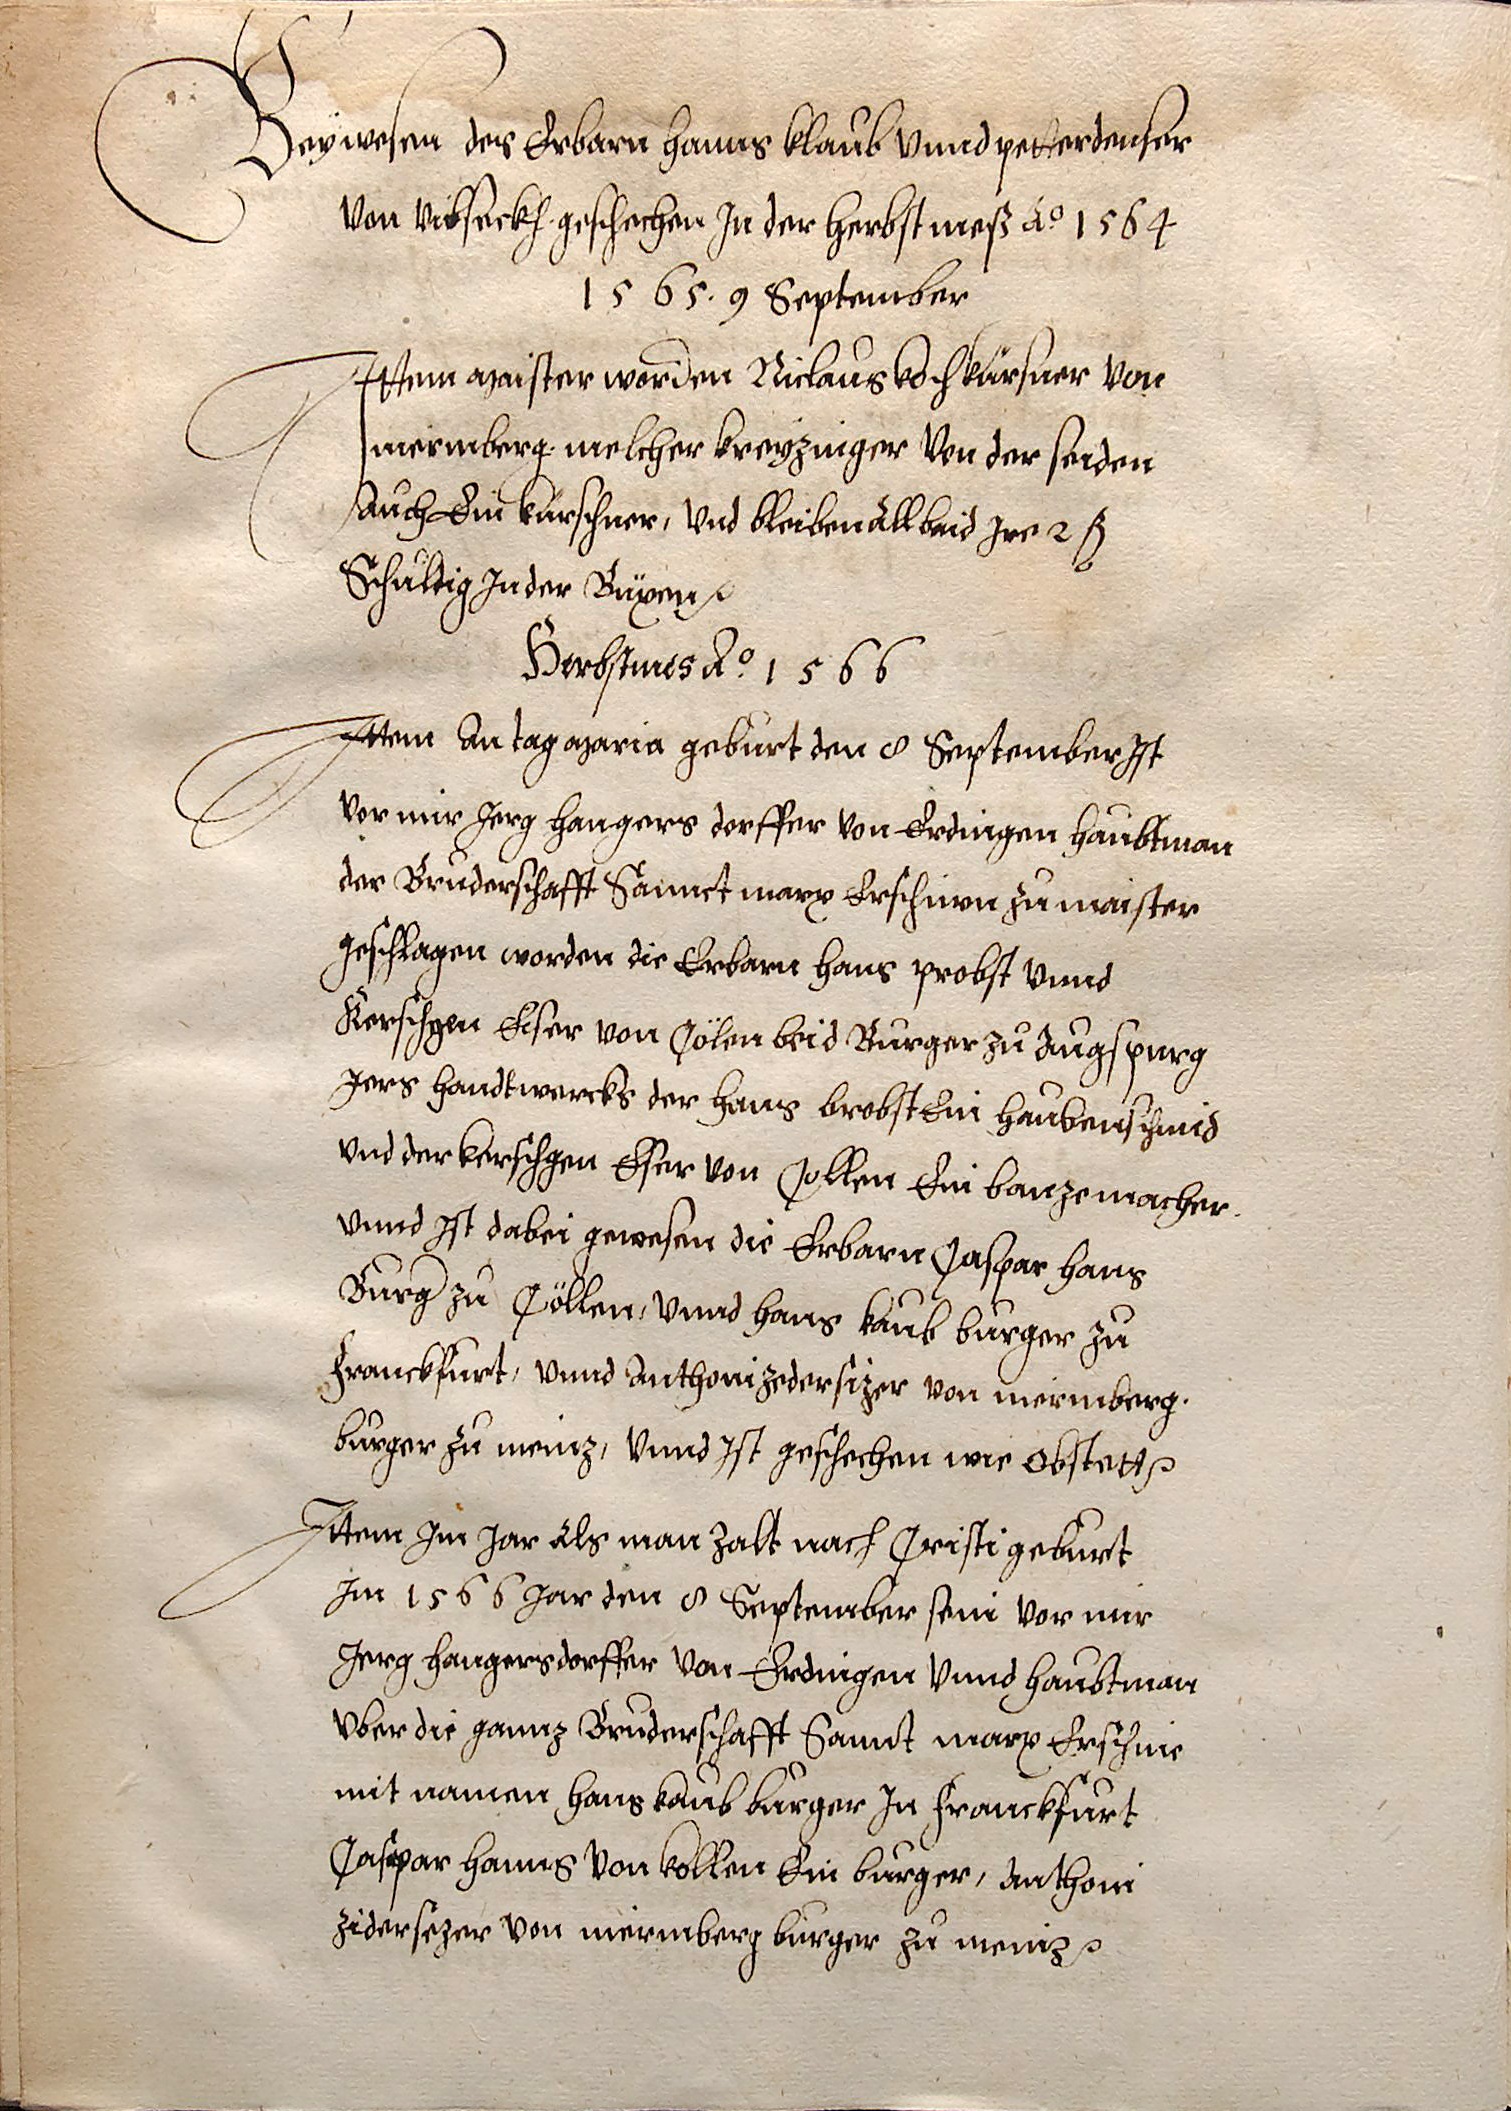 Beywesen des Erbarn hanns klaub vnnd petter denser
von vilseckh geschechen In der herbst meß Ao 1564
1565. 9 September
Ittem maister worden Niclaus koch kürsner von
niermberg. melcher kreyzinger von der seiden
Auch Ein kürschner, vnd bleiben all baid Ire 2 ß
Schuldig In der Büxen
Herbstmes Ao. 1566
Ittem An tag maria geburt den 8 September Ist
vor mir Jerg hangers dorffer von Erdingen haubtman
der Bruderschafft Sannct marx Erschinn zu maister
geschlagen worden die Erbarn hans probst vnnd
Kerschgen Eser von Cölen beid Burger zu Augspurg
Jers handtwercks der hans brobst Ein haubenschmid
vnd der kerschgen Eser von Collen Ein banzemacher.
vnnd Ist dabei gewesen die Erbarn Caspar hans
Burg zu Cöllen, vnnd hans kaub burger zu
franckfurt, vnnd Anthoni zedersizer von niermberg.
burger zu meinz, vnnd Ist geschechen wie obstett
Ittem Im Jar Als man zalt nach Cristi geburt
Im 1566 Jar den 8 September sein vor mir
Jerg hangersdorffer von Erdingen vnnd haubtman
vber die gannz Bruderschafft Sannct marx Erschine
mit namen hans kaub burger In franckfurt
Caspar hanns von kollen Ein burger, Anthoni
zidersezer von niermberg burger zu meinz